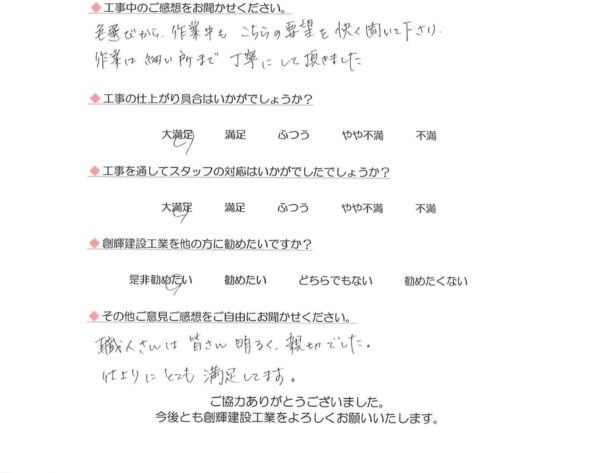 ◆工事中のご感想をお聞かせください。
色選びから、作業中も こちらの要望を 快く聞いて下さり、
作業は 細い所まで 丁寧にして頂きました
◆工事の仕上がり具合はいかがでしょうか?
大満足 満足 ふつう やや不満 不満
◆工事を通してスタッフの対応はいかがでしたでしょうか?
大満足 満足 ふつう やや不満 不満
◆創輝建設工業を他の方に勧めたいですか?
是非勧めたい 勧めたい どちらでもない 勧めたくない
◆その他ご意見ご感想をご自由にお聞かせください。
職人さんは 皆さん 明るく、親切でした。
仕上りに とても 満足してます。
ご協力ありがとうございました。
今後とも創輝建設工業をよろしくお願いいたします。